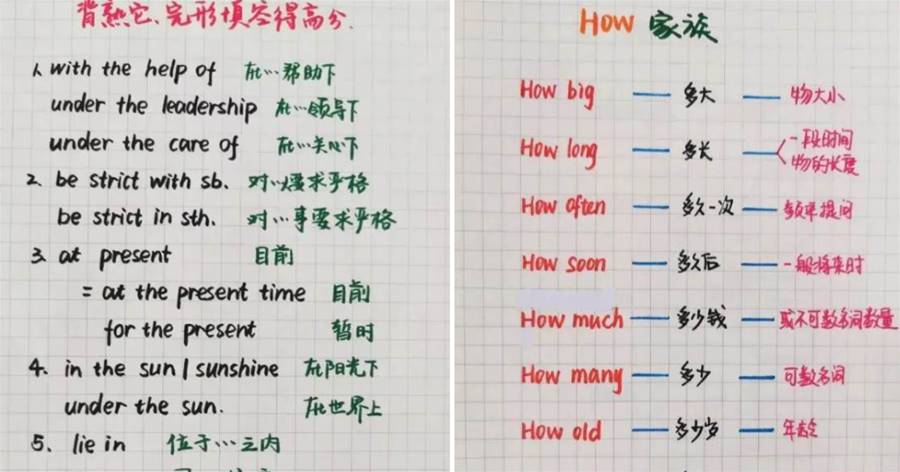 背熟它、完形填空得高分.
1. with the help of 在…帮助下
under the leadership 在…领导下
under the care of 在…关心下
2. be strict with sb. 对…要求严格
be strict in sth. 对…事要求严格
3. at present 目前
= at the present time 目前
for the present 暂时
4. in the sun / sunshine 在阳光下
under the sun. 在世界上
5. lie in 位于…之内
How 家族
How big — 多大 — 物大小
How long — 多长 — 一段时间
物的长度
How often — 多久一次 — 频率提问
How soon — 多久后 — 一般将来时
How much — 多少钱 — 或不可数名词数量
How many — 多少 — 可数名词
How old — 多少岁 — 年龄